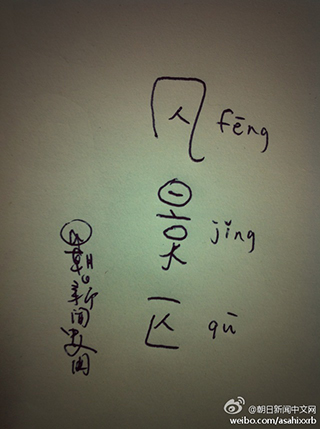 风 fēng
景 jǐng
区 qū
朝日新闻中文网
@朝日新闻中文网
weibo.com/asahixxrb